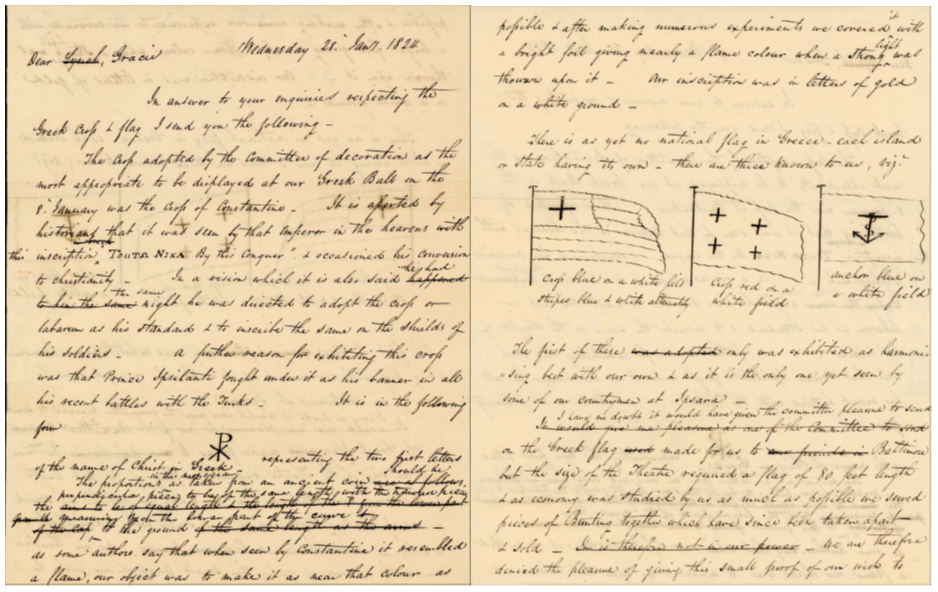 Wednesday 28 Jany. 1824
Dear Lynch, Gracie
In answer to your enquiries respecting the
Greek Crop & flag I send you the following –
The Crop adopted by the Committee of decoration as the
most appropriate to be displayed at our Greek Ball on the
8 January was the Crop of Constantine – It is asserted by
historians that it was seen by that Emperor in the heavens with
this Greek inscription, "TOUTO NIKA By this Conquer" & occasioned his Conversion
to christianity – In a vision which it is also said he had happened
to him the same the same night he was directed to adopt the crop or
labarum as his standard & to inscribe the same on the shields of
his soldiers – a further reason for exhibiting this crop
was that Prince Ipsilanti fought under it as his banner in all
his recent battles with the Turks – It is in the following
form
representing the two first letters
of the name of Christ in Greek –
The proportions as taken from an ancient coin should be
perpendicular
the same length
the arms to be of equal length
of the same length as the arms –
as some authors say that when seen by Constantine it resembled
a flame, our object was to make it as near that colour as
possible & after making numerous experiments we covered it with
a bright foil giving nearly a flame colour when a strong light was
thrown upon it – Our inscription was in letters of gold
on a white ground –
There is as yet no national flag in Greece – each island
or state having its own – there are three known to us, viz-
crop blue on a white field
stripes blue & white alternately
crop red on a
white field
anchor blue on
a white field
The first of these was adopted only was exhibited as harmoni
-sing best with our own & as it is the only one yet seen by
some of our countrymen at Ipsara –
I have no doubt it would have given the committee pleasure to send
It would give me pleasure as one of the Committee to send
on the Greek flag used made for us to our friends in Baltimore
but the size of the Theatre required a flag of 80 feet length
& as economy was studied by us as much as possible we sewed
pieces of Bunting together which have since been taken apart
& sold – It is therefore not in our power – We are therefore
denied the pleasure of giving this small proof of our wish to